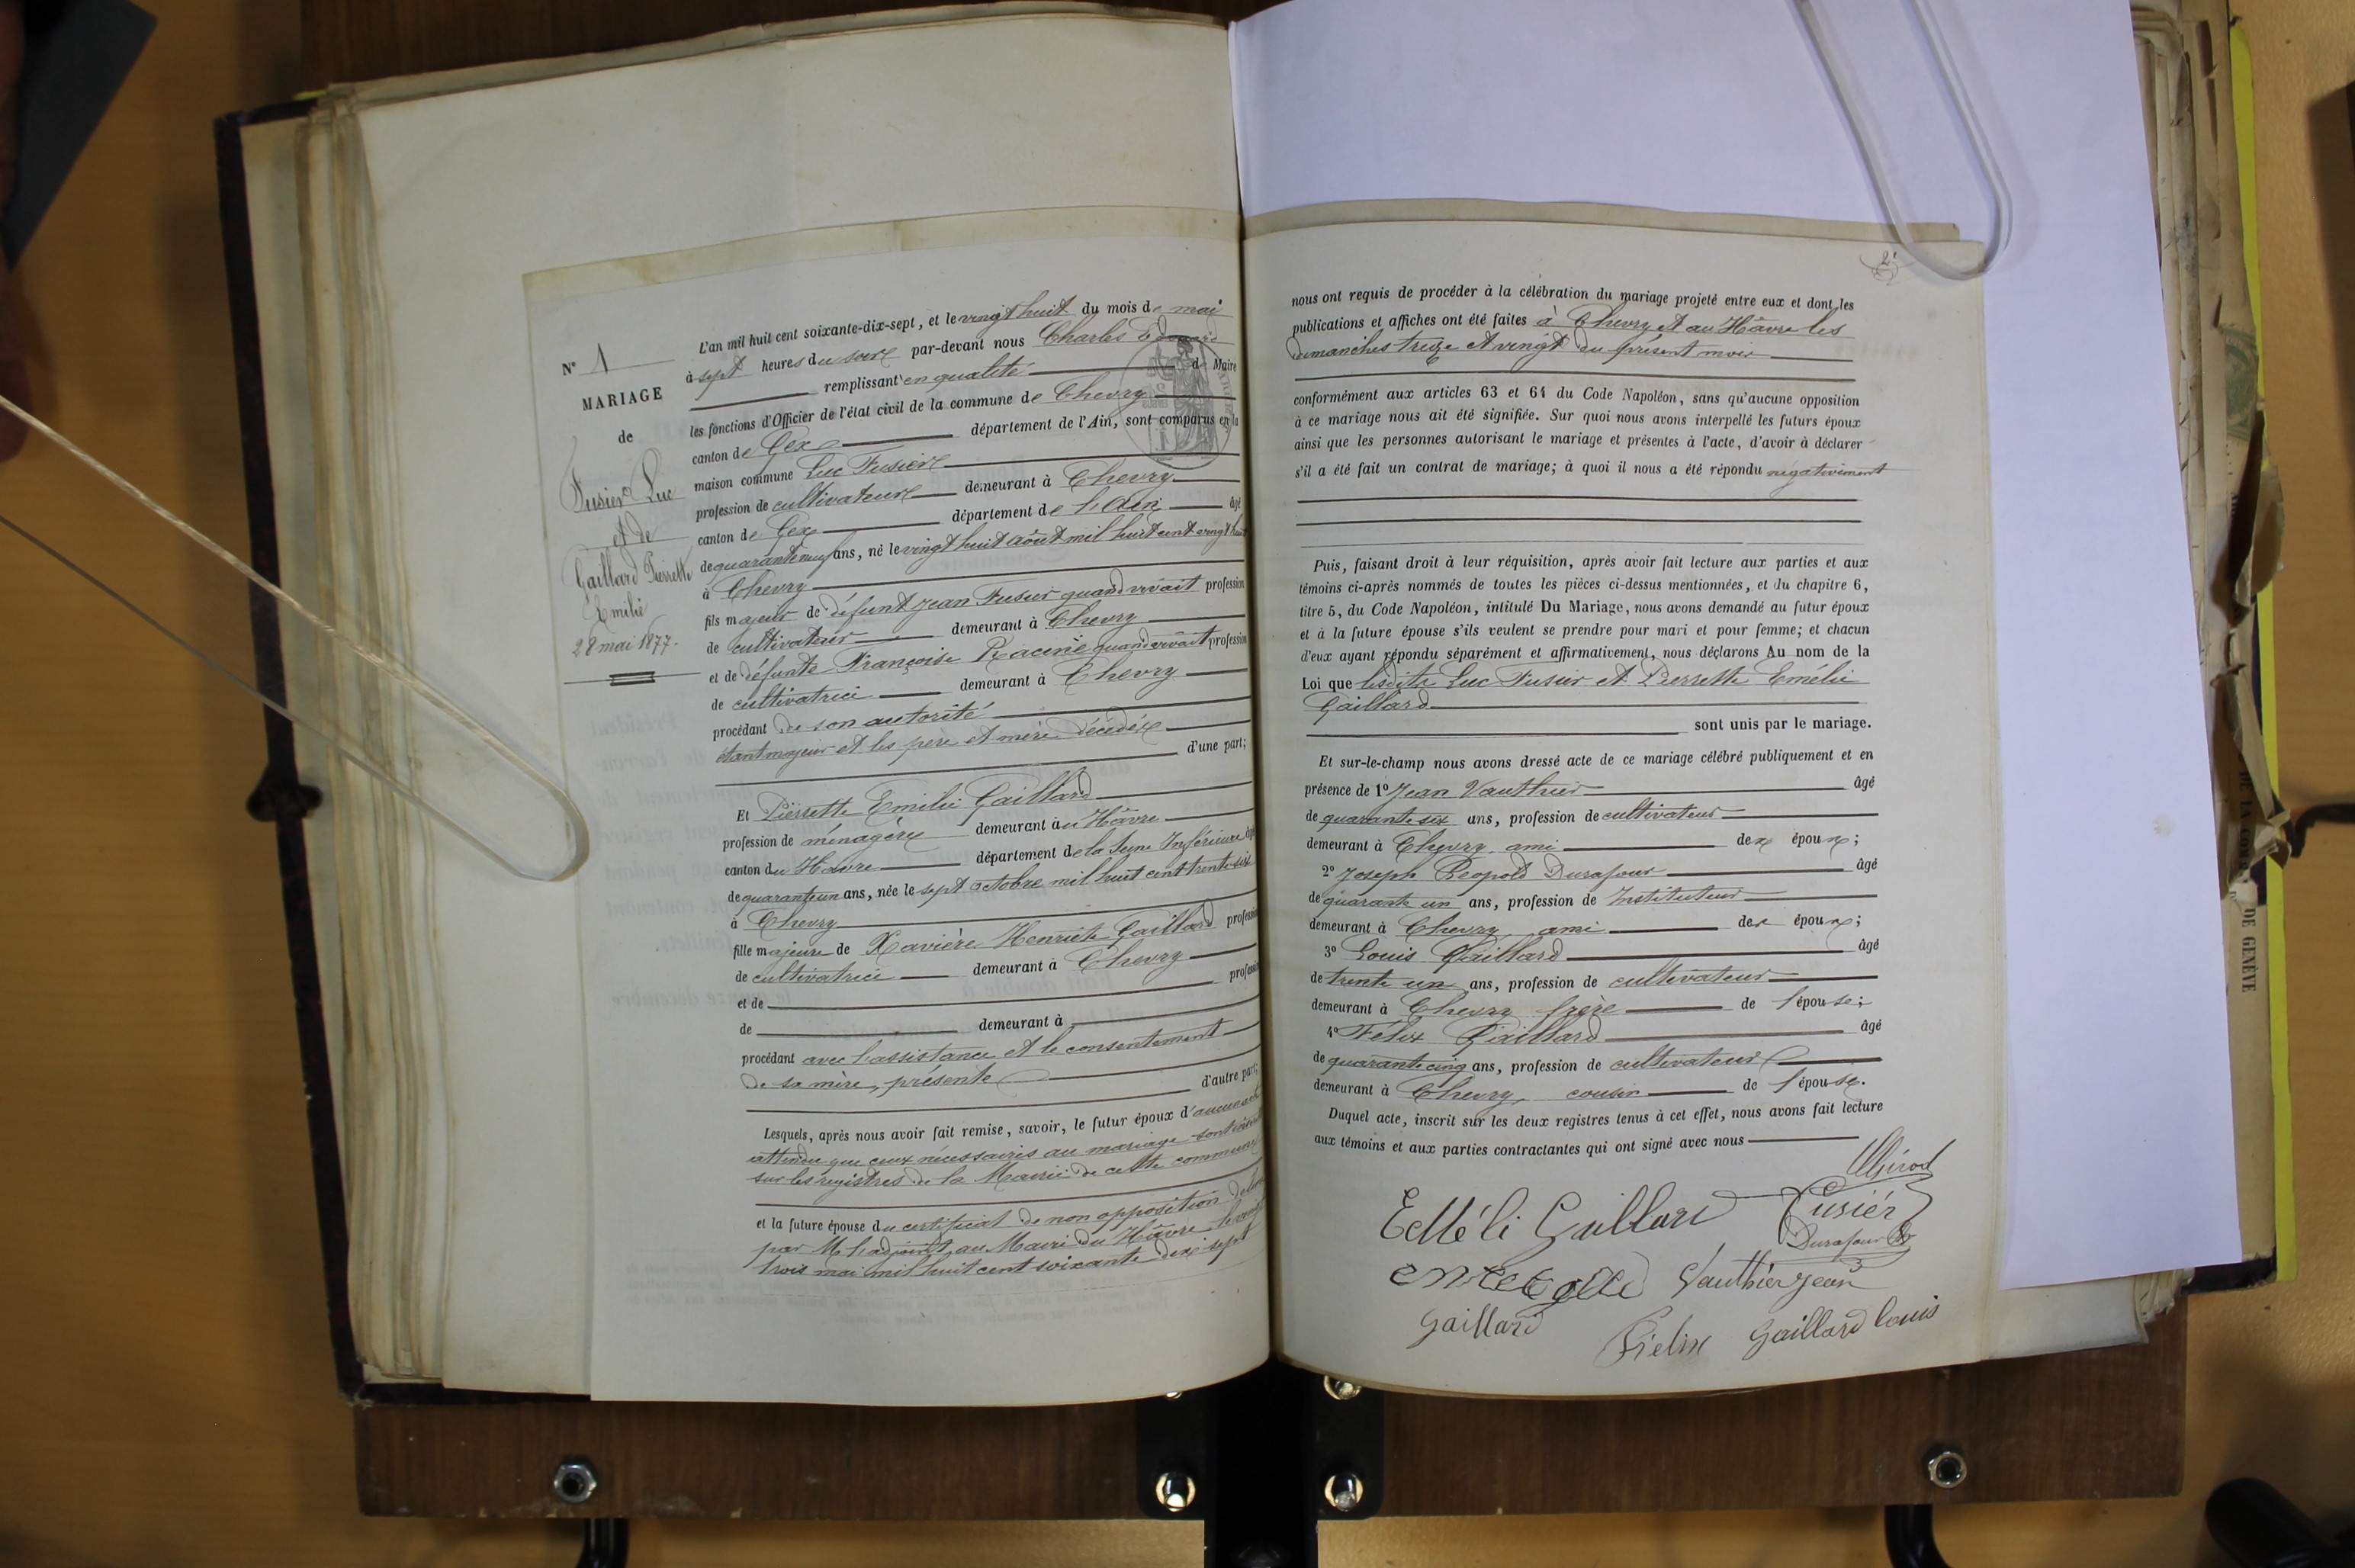 N° 1
MARIAGE
de
Fusier Luc
et de
Gaillard Pierrette
Emélie
28 mai 1877.
L'an mil huit cent soixante-dix-sept, et le vingt huit du mois de mai
à sept heures du soir par-devant nous Charles Edouard
remplissant en qualité de Maire
les fonctions d'Officier de l'état civil de la commune de Chevry
canton de Gex département de l'Ain, sont comparus en la
maison commune Luc Fusier
profession de cultivateur demeurant à Chevry
canton de Gex département de l'Ain âgé
de quarante neuf ans, né le vingt huit août mil huit cent vingt huit
à Chevry
fils majeur de défunt Jean Fusier quand vivait profession
de cultivateur demeurant à Chevry
et de défunte Françoise Racine quand vivait profession
de cultivatrice demeurant à Chevry
procédant de son autorité
étant majeur et les père et mère décédés
d'une part;
Et Pierrette Emélie Gaillard
profession de ménagère demeurant au Hâvre
canton du Hâvre département de la Seine Inférieure âgée
de quarante un ans, née le sept octobre mil huit cent trente six
à Chevry
fille majeure de Xavière Henriette Gaillard profession
de cultivatrice demeurant à Chevry
et de profession
de demeurant à
procédant avec l'assistance et le consentement
de sa mère, présente
d'autre part;
Lesquels, après nous avoir fait remise, savoir, le futur époux d'aucun acte
attendu que ceux nécessaires au mariage sont inscrits
sur les registres de la Mairie de cette commune
et la future épouse du certificat de non opposition délivré
par M. l'adjoint au Maire du Hâvre le vingt
trois mai mil huit cent soixante dix sept
2e
nous ont requis de procéder à la célébration du mariage projeté entre eux et dont les
publications et affiches ont été faites à Chevry et au Hâvre les
dimanches treize et vingt du présent mois
conformément aux articles 63 et 64 du Code Napoléon, sans qu'aucune opposition
à ce mariage nous ait été signifiée. Sur quoi nous avons interpellé les futurs époux
ainsi que les personnes autorisant le mariage et présentes à l'acte, d'avoir à déclarer
s'il a été fait un contrat de mariage; à quoi il nous a été répondu négativement
Puis, faisant droit à leur réquisition, après avoir fait lecture aux parties et aux
témoins ci-après nommés de toutes les pièces ci-dessus mentionnées, et du chapitre 6,
titre 5, du Code Napoléon, intitulé Du Mariage, nous avons demandé au futur époux
et à la future épouse s'ils veulent se prendre pour mari et pour femme; et chacun
d'eux ayant répondu séparément et affirmativement, nous déclarons Au nom de la
Loi que lesdits Luc Fusier et Pierrette Emélie
Gaillard
sont unis par le mariage.
Et sur-le-champ nous avons dressé acte de ce mariage célébré publiquement et en
présence de 1° Jean Vauthier âgé
de quarante six ans, profession de cultivateur
demeurant à Chevry ami des époux;
2° Joseph Léopold Durafour âgé
de quarante un ans, profession de Instituteur
demeurant à Chevry ami des époux;
3° Louis Gaillard âgé
de trente un ans, profession de cultivateur
demeurant à Chevry frère de l'épouse;
4° Félix Gaillard âgé
de quarante cinq ans, profession de cultivateur
demeurant à Chevry cousin de l'épouse.
Duquel acte, inscrit sur les deux registres tenus à cet effet, nous avons fait lecture
aux témoins et aux parties contractantes qui ont signé avec nous
Gaillard Fusier
Durafour
Vauthier Jean
Gaillard Félix Gaillard Louis
DE GENÈVE